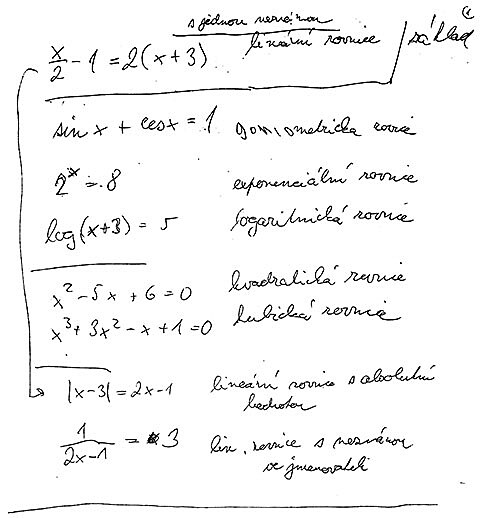 s jednou neznámou
x/2 - 1 = 2(x+3) lineární rovnice / základ
sin x + cos x = 1 goniometrická rovnice
2^x = 8 exponenciální rovnice
log(x+3) = 5 logaritmická rovnice
x² - 5x + 6 = 0 kvadratická rovnice
x³ + 3x² - x + 1 = 0 kubická rovnice
|x-3| = 2x-1 lineární rovnice s absolutní
hodnotou
1/(2x-1) = 3 lin. rovnice s neznámou
ve jmenovateli